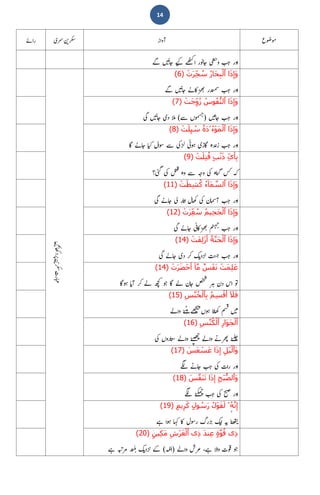 14
موضوع
آواز
رائے
اور جب وحشی جانور اکٹھے کیے جائیں گے
وَإِذَا ٱلْبِحَارُ سُجِّرَتْ (6)
اور جب سمندر بھڑکائے جائیں گے
وَإِذَا ٱلنُّفُوسُ زُوِّجَتْ (7)
اور جب جانیں (جسموں سے) ملا دی جائیں گی
وَإِذَا ٱلْمَوْءُۥدَةُ سُئِلَتْ (8)
اور جب زندہ گاڑی ہوئی لڑکی سے سوال کیا جائے گا
بِأَىِّ ذَنۢبٍ قُتِلَتْ (9)
کہ کس گناہ کی وجہ سے وہ قتل کی گئی؟
وَإِذَا ٱلسَّمَآءُ كُشِطَتْ (11)
اور جب آسمان کی کھال اتار لی جائے گی
وَإِذَا ٱلْجَحِيمُ سُعِّرَتْ (12)
اور جب جہنم بھڑکائی جائے گی
وَإِذَا ٱلْجَنَّةُ أُزْلِفَتْ (14)
اور جب جنت نزدیک کر دی جائے گی
عَلِمَتْ نَفْسٌ مَّآ أَحْضَرَتْ (14)
تو اس دن ہر شخص جان لے گا جو کچھ لے کر آیا ہوگا
فَلَآ أُقْسِمُ بِٱلْخُنَّسِ (15)
میں قسم کھاتا ہوں پیچھے ہٹنے والے
ٱلْجَوَارِ ٱلْكُنَّسِ (16)
چلنے پھرنے والے چھپنے والے ستاروں کی
وَٱلَّيْلِ إِذَا عَسْعَسَ (17)
اور رات کی جب جانے لگے
وَٱلصُّبْحِ إِذَا تَنَفَّسَ (18)
اور صبح کی جب چمکنے لگے
إِنَّهُۥ لَقَوْلُ رَسُولٍ كَرِيمٍ (19)
یقیناً یہ ایک بزرگ رسول کا کہا ہوا ہے
ذِى قُوَّةٍ عِندَ ذِى ٱلْعَرْشِ مَكِينٍ (20)
جو قوت والا ہے، عرش والے (اللہ) کے نزدیک بلند مرتبہ ہے